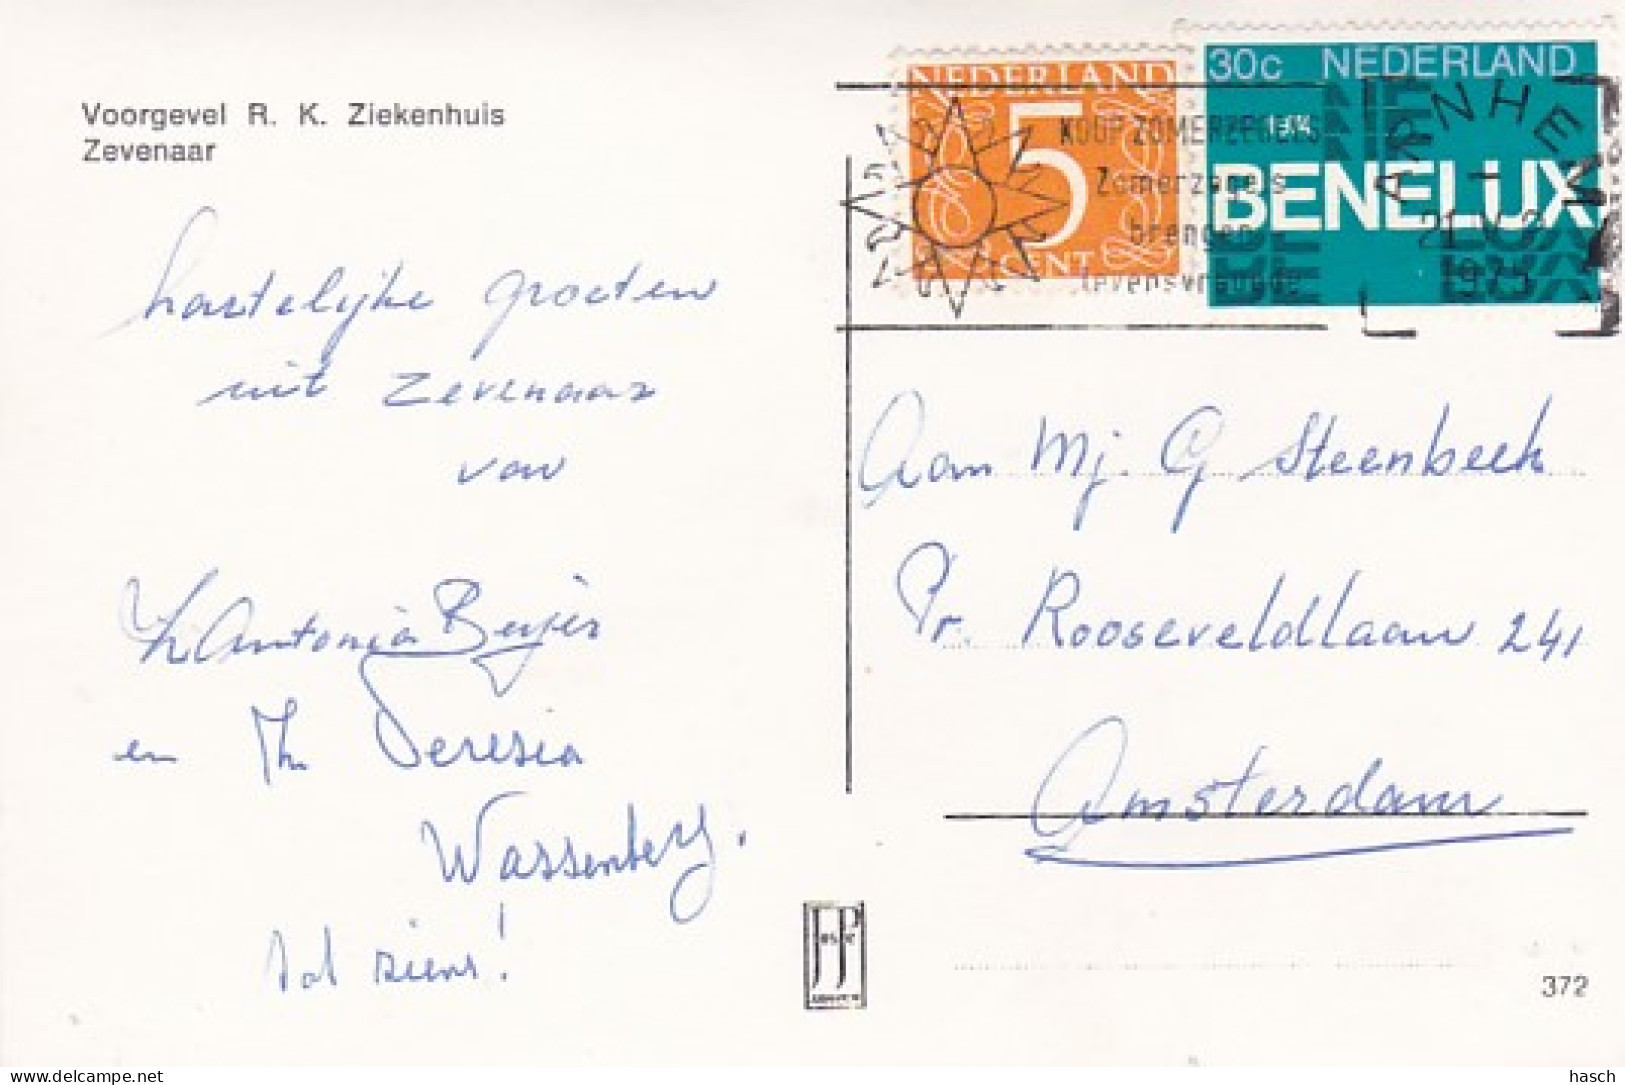 Voorgevel R. K. Ziekenhuis
Zevenaar
hartelijke groeten
uit Zevenaar
van
Zr Antonia Beijer
en Th Teresia
Wassenberg.
tot ziens!
NEDERLAND
5
CENT
30c NEDERLAND
1974
BENELUX
KOOP ZOMERZEGELS
Zomerzegels
brengen
levensvreugde
ARNHEM
1
1975
Aan Mj. G Steenbeek
Pr. Rooseveldlaan 241
Amsterdam
JP
372
delcampe.net
hasch